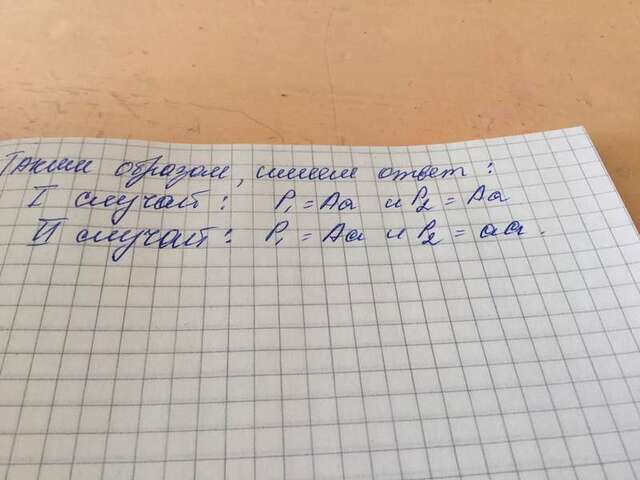 Таким образом, пишем ответ:
I случай: P₁ = Aa и P₂ = Aa
II случай: P₁ = Aa и P₂ = aa.